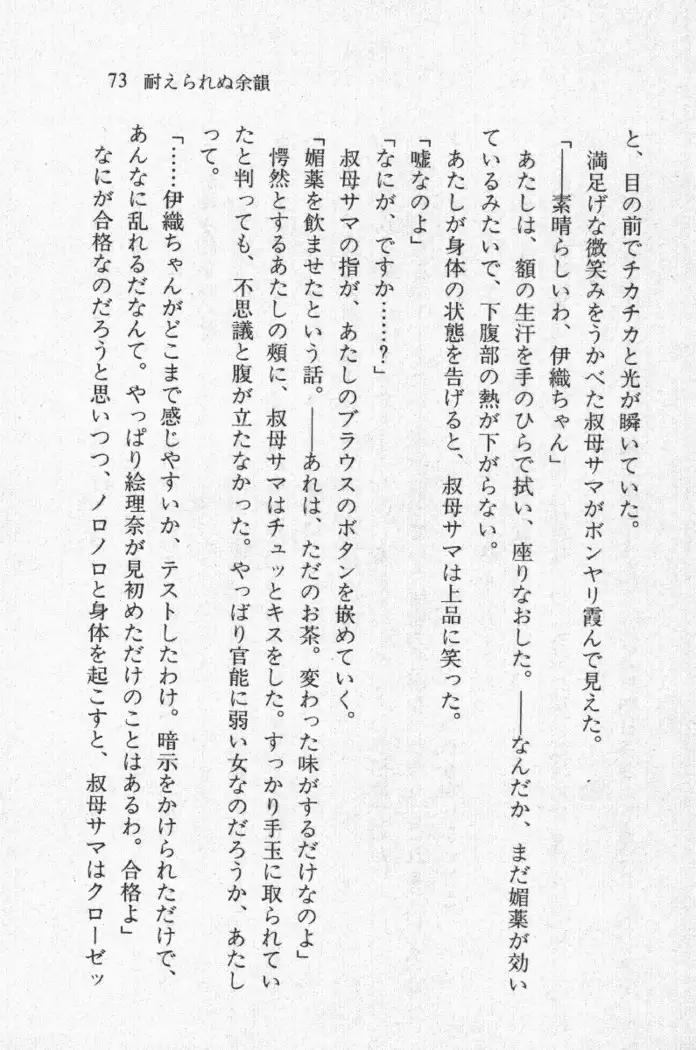 73 耐えられぬ余韻
と、目の前でチカチカと光が瞬いていた。
満足げな微笑みをうかべた叔母サマがボンヤリ霞んで見えた。
「――素晴らしいわ、伊織ちゃん」
あたしは、額の生汗を手のひらで拭い、座りなおした。――なんだか、まだ媚薬が効い
ているみたいで、下腹部の熱が下がらない。
あたしが身体の状態を告げると、叔母サマは上品に笑った。
「嘘なのよ」
「なにが、ですか……?」
叔母サマの指が、あたしのブラウスのボタンを嵌めていく。
「媚薬を飲ませたという話。――あれは、ただのお茶。変わった味がするだけなのよ」
愕然とするあたしの頰に、叔母サマはチュッとキスをした。すっかり手玉に取られてい
たと判っても、不思議と腹が立たなかった。やっぱり官能に弱い女なのだろうか、あたし
って。
「……伊織ちゃんがどこまで感じやすいか、テストしたわけ。暗示をかけられただけで、
あんなに乱れるだなんて。やっぱり絵理奈が見初めただけのことはあるわ。合格よ」
なにが合格なのだろうと思いつつ、ノロノロと身体を起こすと、叔母サマはクローゼッ